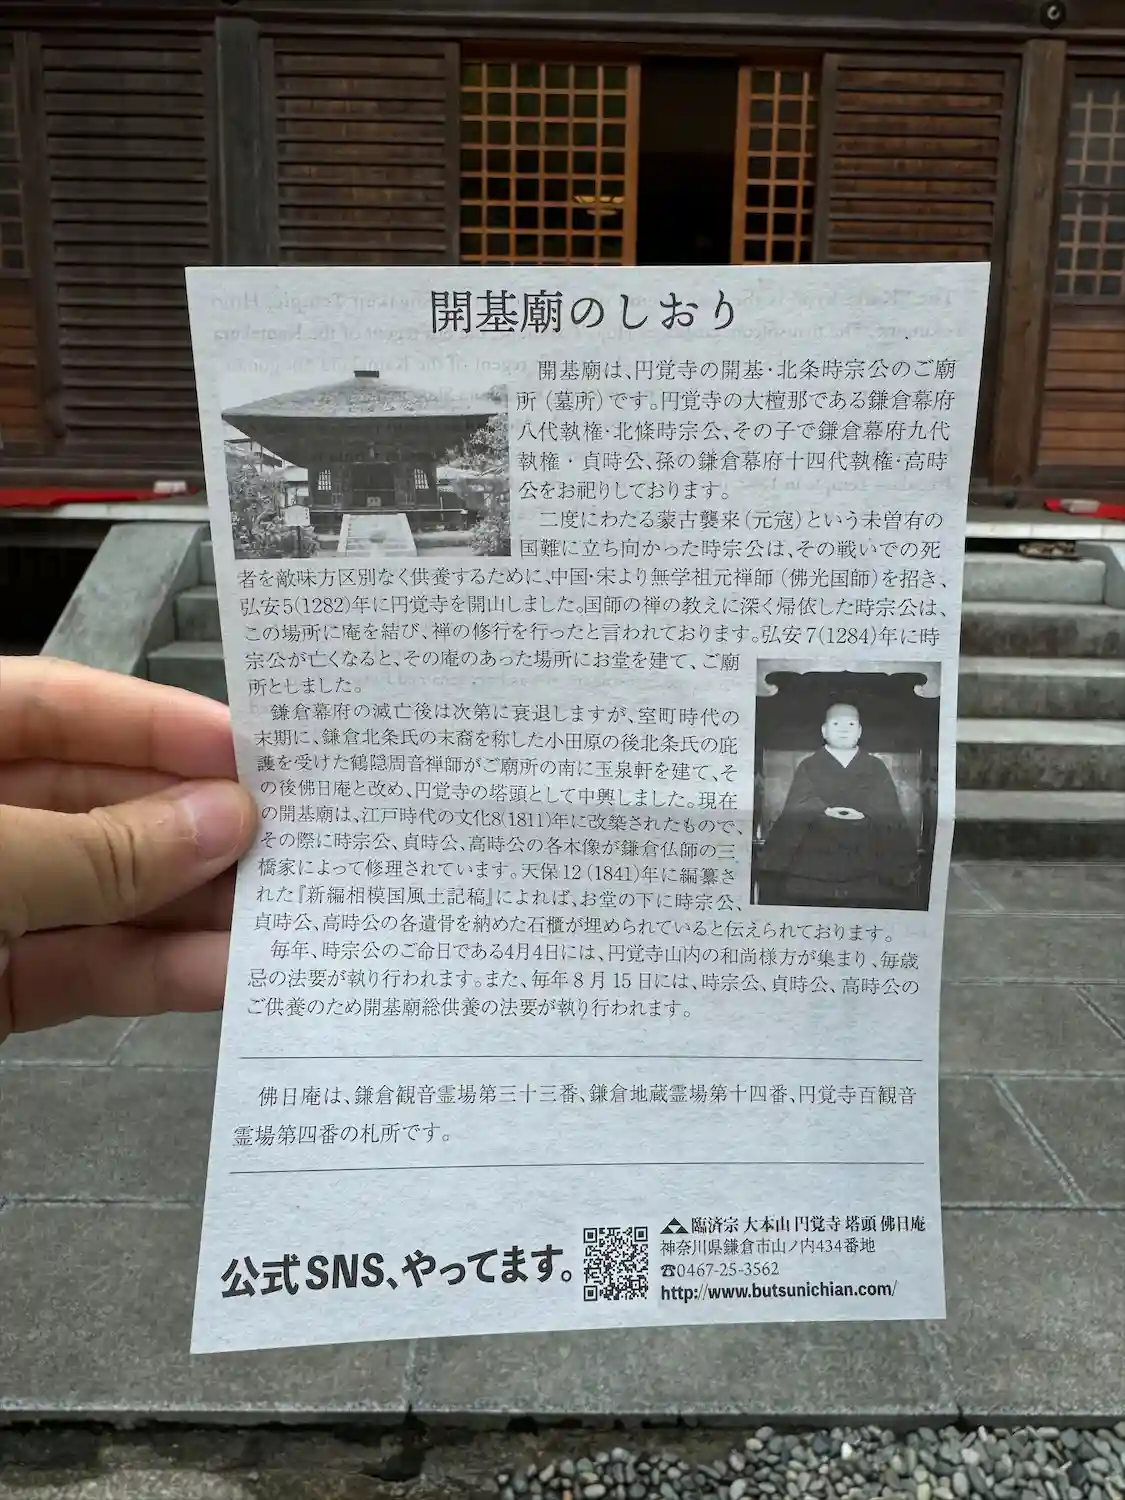 開基廟のしおり
開基廟は、円覚寺の開基・北条時宗公のご廟
所（墓所）です。円覚寺の大檀那である鎌倉幕府
八代執権・北條時宗公、その子で鎌倉幕府九代
執権・貞時公、孫の鎌倉幕府十四代執権・高時
公をお祀りしております。
二度にわたる蒙古襲来（元寇）という未曽有の
国難に立ち向かった時宗公は、その戦いでの死
者を敵味方区別なく供養するために、中国・宋より無学祖元禅師（佛光国師）を招き、
弘安5(1282)年に円覚寺を開山しました。国師の禅の教えに深く帰依した時宗公は、
この場所に庵を結び、禅の修行を行ったと言われております。弘安7(1284)年に時
宗公が亡くなると、その庵のあった場所にお堂を建て、ご廟
所としました。
鎌倉幕府の滅亡後は次第に衰退しますが、室町時代の
末期に、鎌倉北条氏の末裔を称した小田原の後北条氏の庇
護を受けた鶴隠周音禅師がご廟所の南に玉泉軒を建て、そ
の後佛日庵と改め、円覚寺の塔頭として中興しました。現在
の開基廟は、江戸時代の文化8(1811)年に改築されたもので、
その際に時宗公、貞時公、高時公の各木像が鎌倉仏師の三
橋家によって修理されています。天保12(1841)年に編纂さ
れた『新編相模国風土記稿』によれば、お堂の下に時宗公、
貞時公、高時公の各遺骨を納めた石櫃が埋められていると伝えられております。
毎年、時宗公のご命日である4月4日には、円覚寺山内の和尚様方が集まり、毎歳
忌の法要が執り行われます。また、毎年8月15日には、時宗公、貞時公、高時公の
ご供養のため開基廟総供養の法要が執り行われます。
佛日庵は、鎌倉観音霊場第三十三番、鎌倉地蔵霊場第十四番、円覚寺百観音
霊場第四番の札所です。
公式SNS、やってます。
臨済宗 大本山 円覚寺 塔頭 佛日庵
神奈川県鎌倉市山ノ内434番地
☎0467-25-3562
http://www.butsunichian.com/